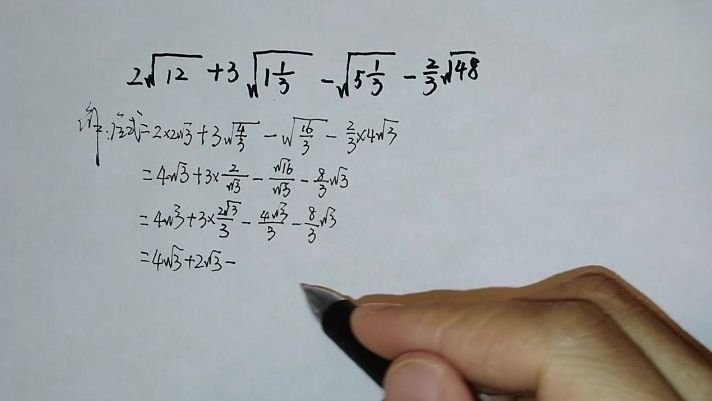 2√12 + 3√1⅓ - √5⅓ - ⅔√48
解:原式=2×2√3+3√(4/3) - √(16/3) - ⅔×4√3
=4√3+3×2/√3 - √16/√3 - 8/3√3
=4√3+3×2√3/3 - 4√3/3 - 8/3√3
=4√3+2√3-